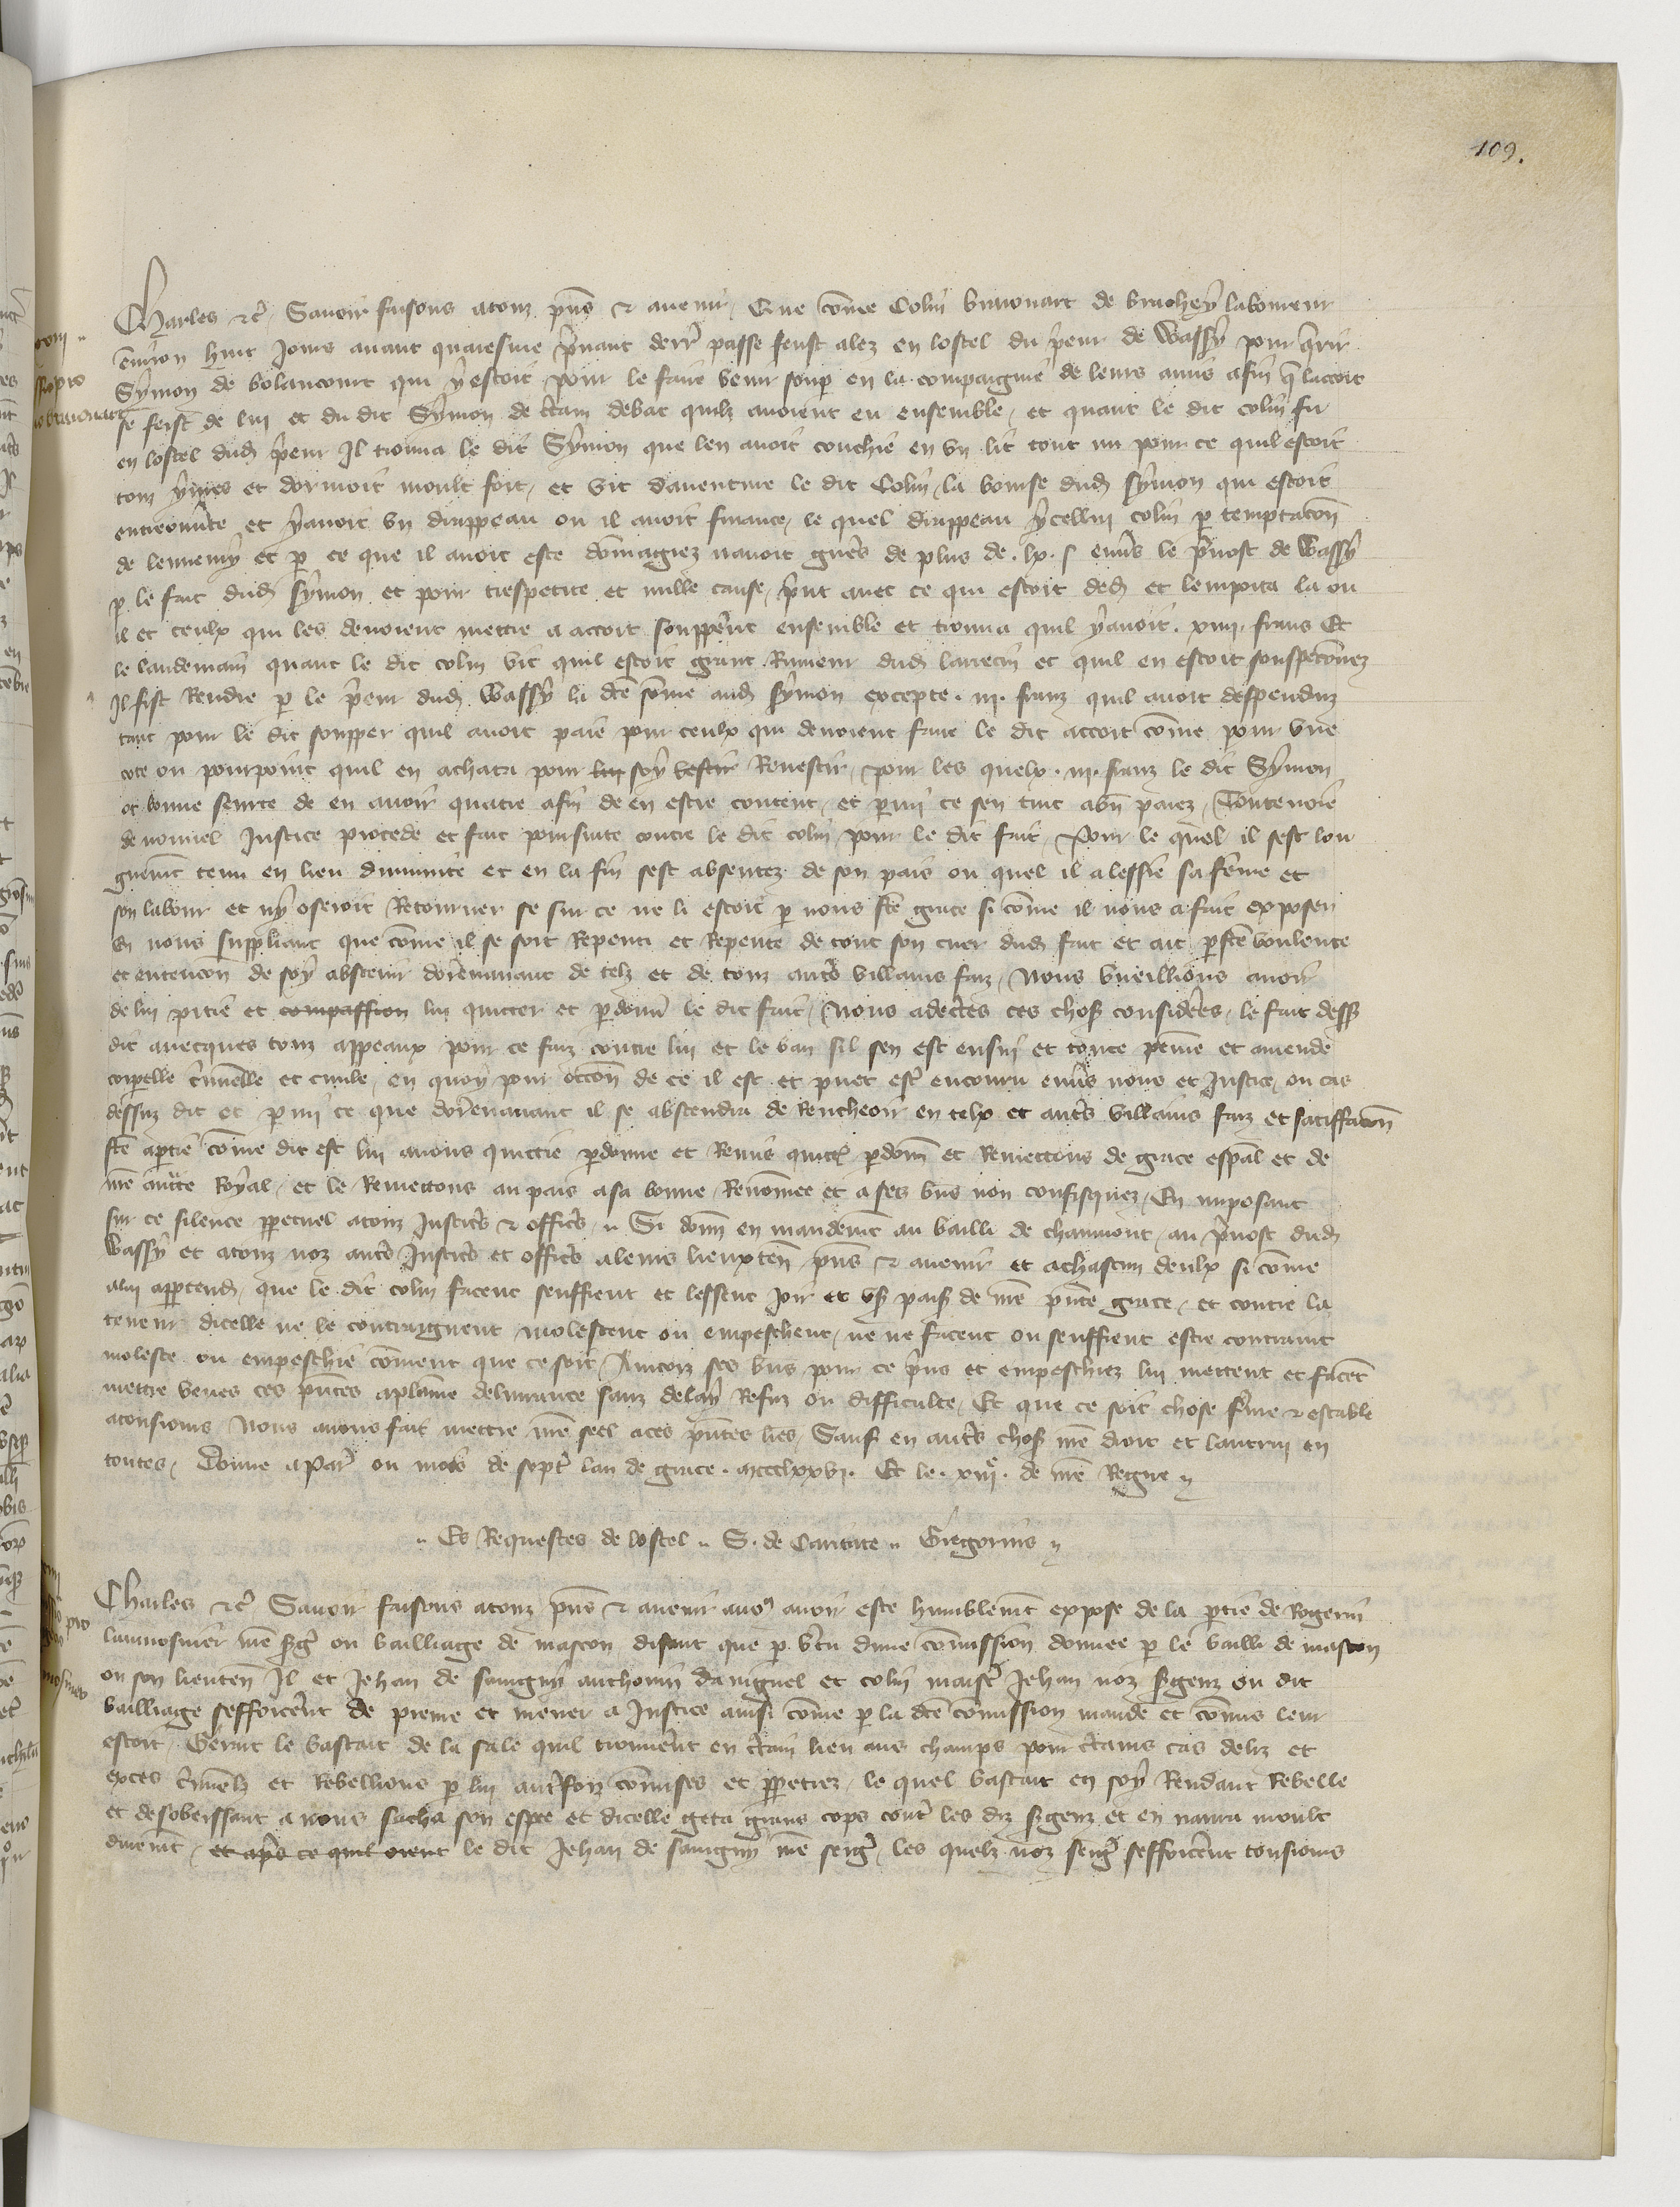 109.
Charles etc̃ Savoir faisons a touz p̃ns et avenir Que cõme Colin bruionart de brachey laboureur
environ huit jours avant quaresme p̃nant derr̃ passe feust alez en lostel du p̃eur de Wassy pour q̃rir
Symon de bolancourt qui y estoit pour le faire venir soup̃ en la compaignie de leurs amis afin q̃ lacort
se feist de lui et du dit Symon de c̃tain debat quilz avoient eu ensemble, et quant le dit colin fu
en lostel dud̃ p̃eur Il trouva le dit Symon que len avoit couchie en un lit tout nu pour ce quil estoit
touz yvres et dormoit moult fort, et vit davanture le dit Colin la bourse dud̃ symon qui estoit
entreouṽte et y avoit un drappeau ou il avoit finance, le quel drappeau ycellui colin p̱ temptacõn
de lennemy et p̱ ce que il avoit este dõmagiez navoit gueres de plus de .lx. s̃ enṽs le p̃vost de Wassy
p̱ le fait dud̃ symon et pour trespetite et nulle cause, p̃nt avec ce qui estoit ded̃ et lemporta la ou
il et ceulx qui les devoient mettre a accort soupp̃ent ensemble et trouva quil y avoit .xiiij. frans Et
le landemain quant le dit colin vit quil estoit grant Rumeur dud̃ larrecin et quil en estoit souspeconnez
Il fist Rendre p̱ le p̃eur dud̃ Wassy la dc̃e sõme aud̃ symon excepte .iij. franz quil avoit despenduz
tant pour le dit soupper quil avoit paie pour ceulx qui devoient faire le dit accort cõme pour une
cote ou pourpoint quil en achata pour lui soy vestir Revestir, pour les quelx .iij. franz le dit Symon
ot bonne seurte de en avoir quatre afin de en estre content, et p̱mi ce sen tint a bñ paiez, Toutevoie
de nouvel Justice procede et fait poursuite contre le dit colin pour le dit fait, Pour le quel il sest lon
guem̃t tenu en lieu dimunite et en la fin sest absentez de son pais ou quel il a lessie sa fẽme et
son labour et ny oseroit Retourner se sur ce ne li estoit p̱ nous fc̃e grace si cõme il nous a fait exposer
En nous suppliant que cõme il se soit Repenti et Repente de tout son cuer dud̃ fait et ait p̱fc̃e voulente
et entencõn de soy abstenir doresnavant de telz et de touz autr̃s villains faiz, Nous vueillions avoir
de lui pitie et compassion lui quitter et p̱donn̄ le dit fait, Nous adc̃tes ces chos̃ consider̃es, le fait dess̃
dit avecques touz appeaux pour ce faiz contre lui et le ban sil sen est ensui et toute peine et amende
corpelle c̃minelle et civile, en quoy pour occon̄ de ce il est et puet est̃ encouru enṽs nous et Justice, ou cas
dessuz dit et p̱ mi ce que dorẽnavant il se abstendra de Rencheoir en telx et autr̃s villains faiz et satiffacõn
fc̃e a p̱tie cõme dit est lui avons quittie p̱donne et Remis quitt̃ p̱donn̄ et Remettons de grace esp̃al et de
nr̃e auct̃e Royal, et le Remettons au pais a sa bonne Renõmee et a ses bñs non confisquez, En imposant
sur ce silence pp̱etuel a touz Justic̃s et offic̃s, Si donn̄ en mandem̃t au bailli de chaumont, au p̃vost dud̃
Wassy et a touz noz autr̃s Justic̃s et offic̃s a leurs lieuxten̄ p̃ns et avenir et a chascun deulx si cõme
a lui app̱tend̃, que le dit colin facent seuffrent et lessent joir et us̃ pais̃ de nr̃e p̃nte grace, et contre la
teneur dicelle ne le contraignent molestent ou empeschent, ne ne facent ou seuffrent estre contraint
moleste ou empeschie cõment que ce soit, Aincois ses bñs pour ce p̃ns et empeschiez lui mettent et facẽt
mettre veues ces p̃ntes a plaine delivrance sanz delay Refuz ou difficulte, Et que ce soit chose f̃me et estable
a tousiours Nous avons fait mettre nr̃e seel a ces p̃ntes lr̃es, Sauf en autr̃s chos̃ nr̃e droit et lautrui en
toutes, Donne a Par̃ ou mois de sept̃ lan de grace .mccclxxvj. Et le .xiijᵉ. de nr̃e Regne
Es Requestes de lostel S. de Caritate Gregorius
Charles etc̃ Savoir faisons a touz p̃ns et avenir avoir este humblem̃t expose de la p̱tie de Rogerin
laumosnier nr̃e s̃g̃ ou bailliage de mascon disant que p̱ ṽtu dune cõmission donnee p̱ le bailli de mascon
ou son lieuten̄ Il et Jehan de savigny anthonin daniguel et colin maist̃ Jehan noz s̃genz ou dit
bailliage sefforc̃ent de prenre et mener a Justice ainsi cõme p̱ la dc̃e cõmission mande et cõmis leur
estoit, G̃erart le bastart de la sale quil trouver̃nt en c̃tain lieu aus champs pour c̃tains cas deliz et
exces c̃minelz et Rebellions p̱ lui aut̃foiz cõmises et pp̱etrez, le quel bastart en soy Rendant Rebelle
et desobeissant a nous sacha son espee et dicelle geta grans cops cont̃ les diz s̃genz et en navra moult
durem̃t, et apr̃s ce quil orent le dit Jehan de savigny nr̃e serg̃, les quelz noz serg̃ sefforc̃ent tousiours